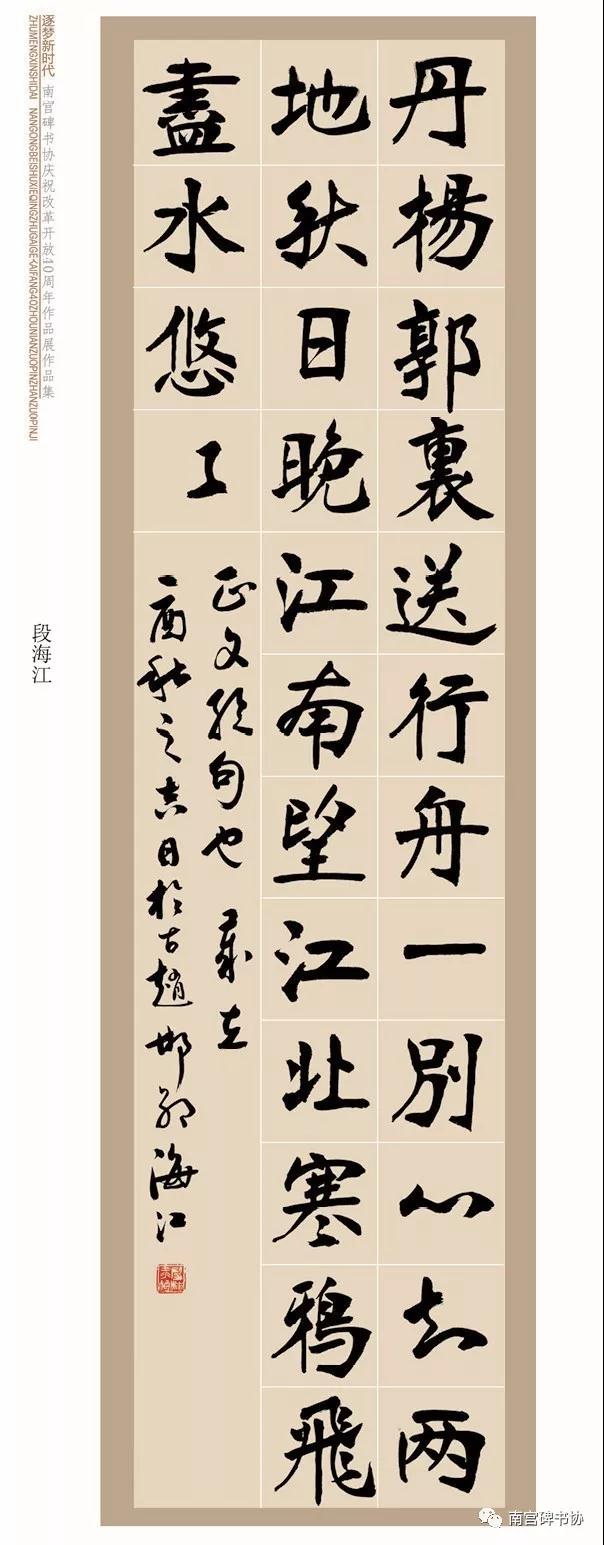 丹楊郭裏送行舟一別心知两
地秋日晚江南望江北寒鴉飛
盡水悠々
正文句也 歲在
丁酉秋之吉日於古趙邯鄲海江
逐梦新时代 南宫碑书协庆祝改革开放40周年作品展作品集
ZHUMENGXINSHIDAI NANGONGBEISHUXIEQINGZHUGAIGEKAIFANG40ZHOUNIANZUOPINZHANZUOPINJI
段海江
南宫碑书协